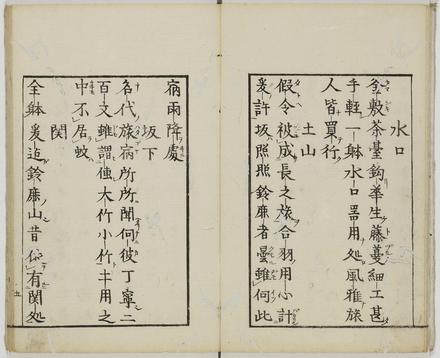 水口
釜敷茶臺鈎華生藤蔓細工甚
手軽一躰水口器用処風雅旅
人皆買行
土山
假令被成長之旅合羽用心計
爰許坂照照鈴鹿者曇雖何此
病雨降處
坂下
名代旅病所所聞何彼丁寧二
百文雖謂俥大竹小竹丰用之
中不居蚊
関
全躰爰迠鈴鹿山昔依有関処
五